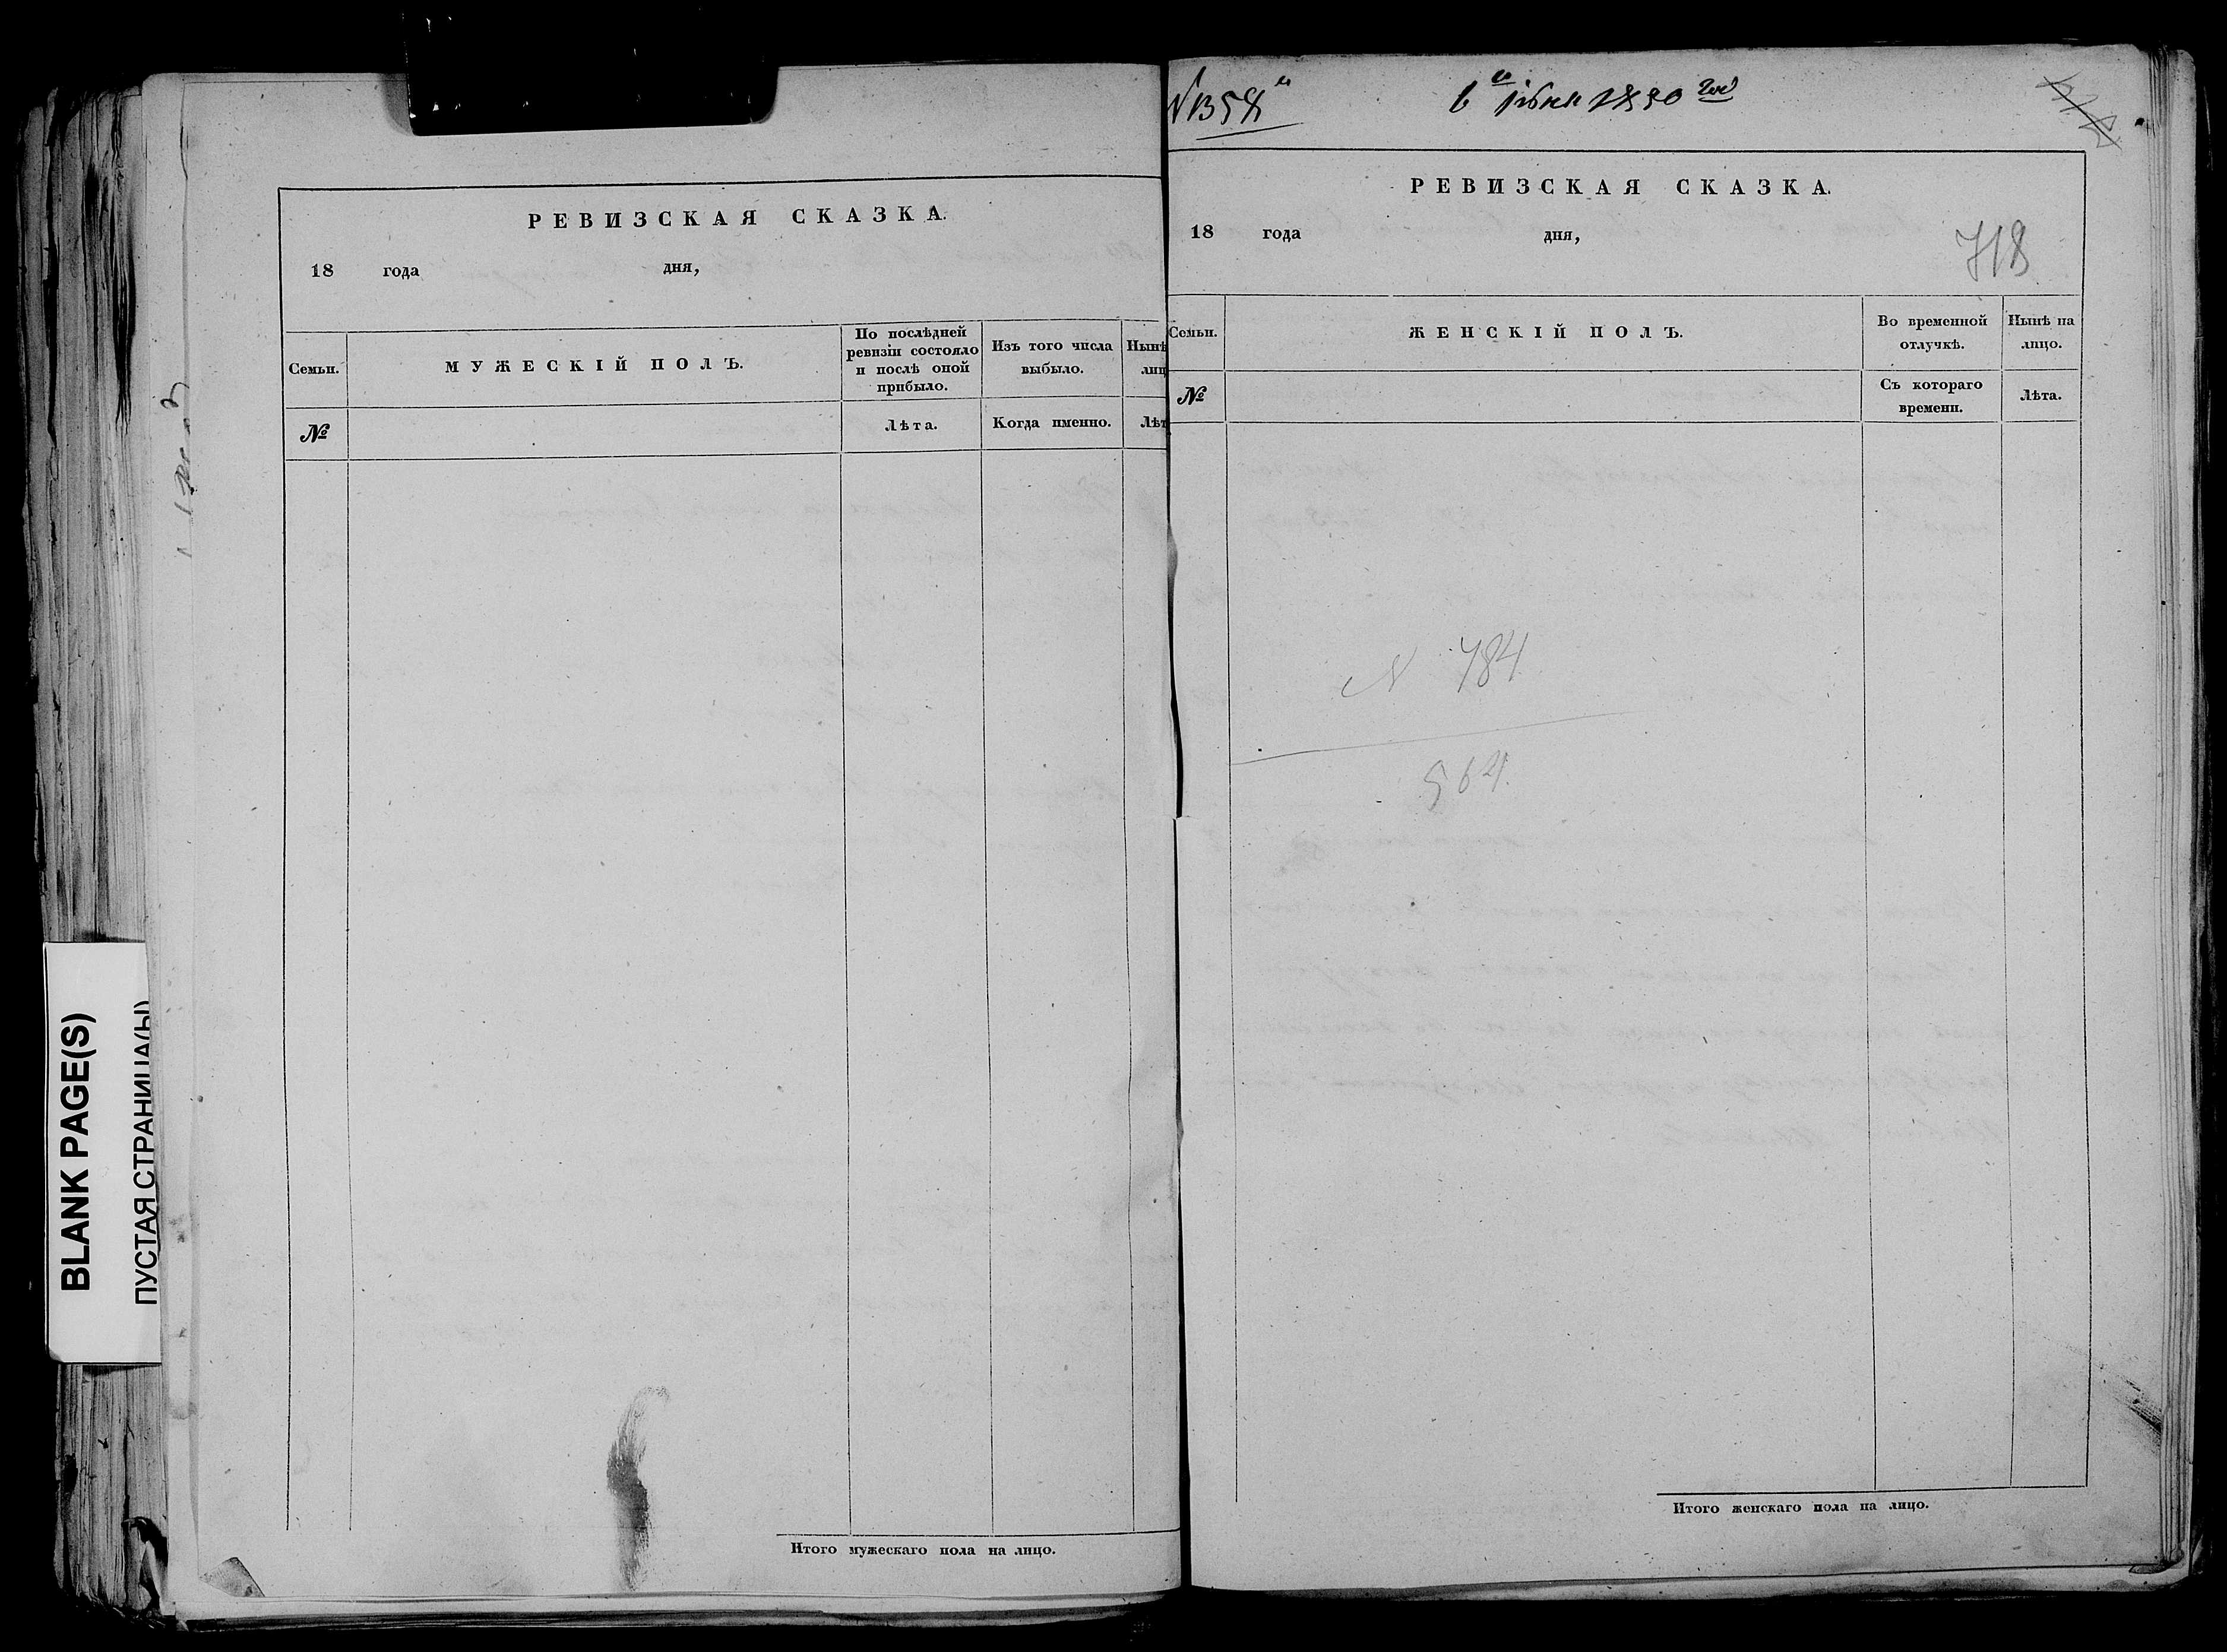 РЕВИЗСКАЯ СКАЗКА.
18 года дня,
Семьи.
МУЖЕСКІЙ ПОЛЪ.
По послѣдней ревизіи состояло и послѣ оной прибыло.
Изъ того числа выбыло.
Нынѣ
№
Лѣта.
Когда именно.
Итого мужескаго пола на лицо.
BLANK PAGE(S)
ПУСТАЯ СТРАНИЦА(Ы)
1850
РЕВИЗСКАЯ СКАЗКА.
18 года дня,
718
Семьи.
ЖЕНСКІЙ ПОЛЪ.
Во временной отлучкѣ.
Нынѣ на лицо.
№
Съ котораго времени.
Лѣта.
N 784
564.
Итого женскаго пола на лицо.